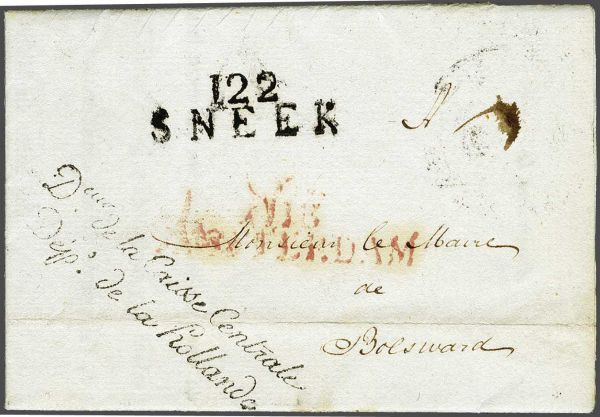 122
SNEEK
A
AMSTERDAM
Monsieur le Maire
de
Bolsward
Dque de la Caisse Centrale
Dépt. de la Hollande